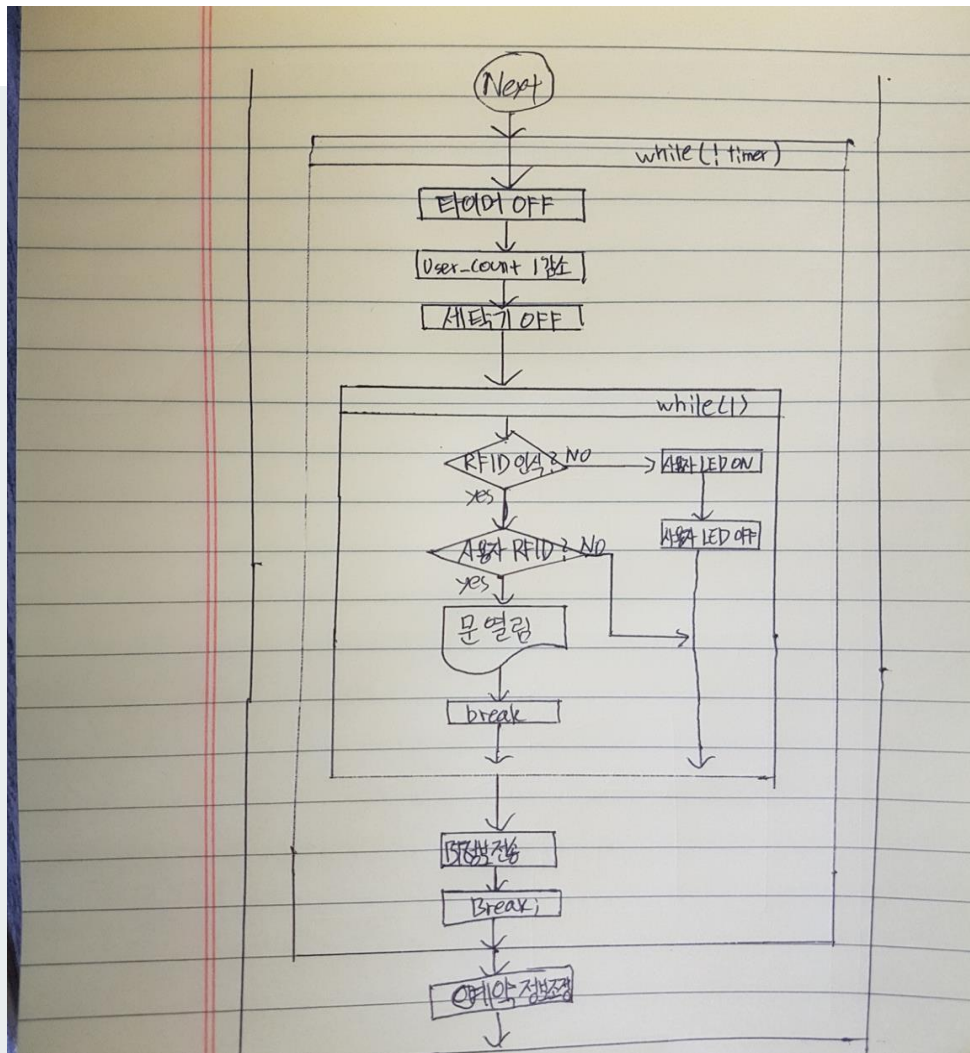 Next
while(! timer)
타이머 OFF
User_count 1감소
세탁기 OFF
while(1)
RFID 인식? NO
사용자 LED ON
yes
사용자 RFID? NO
사용자 LED OFF
yes
문 열림
break
정보 전송
Break;
예약 정보조정